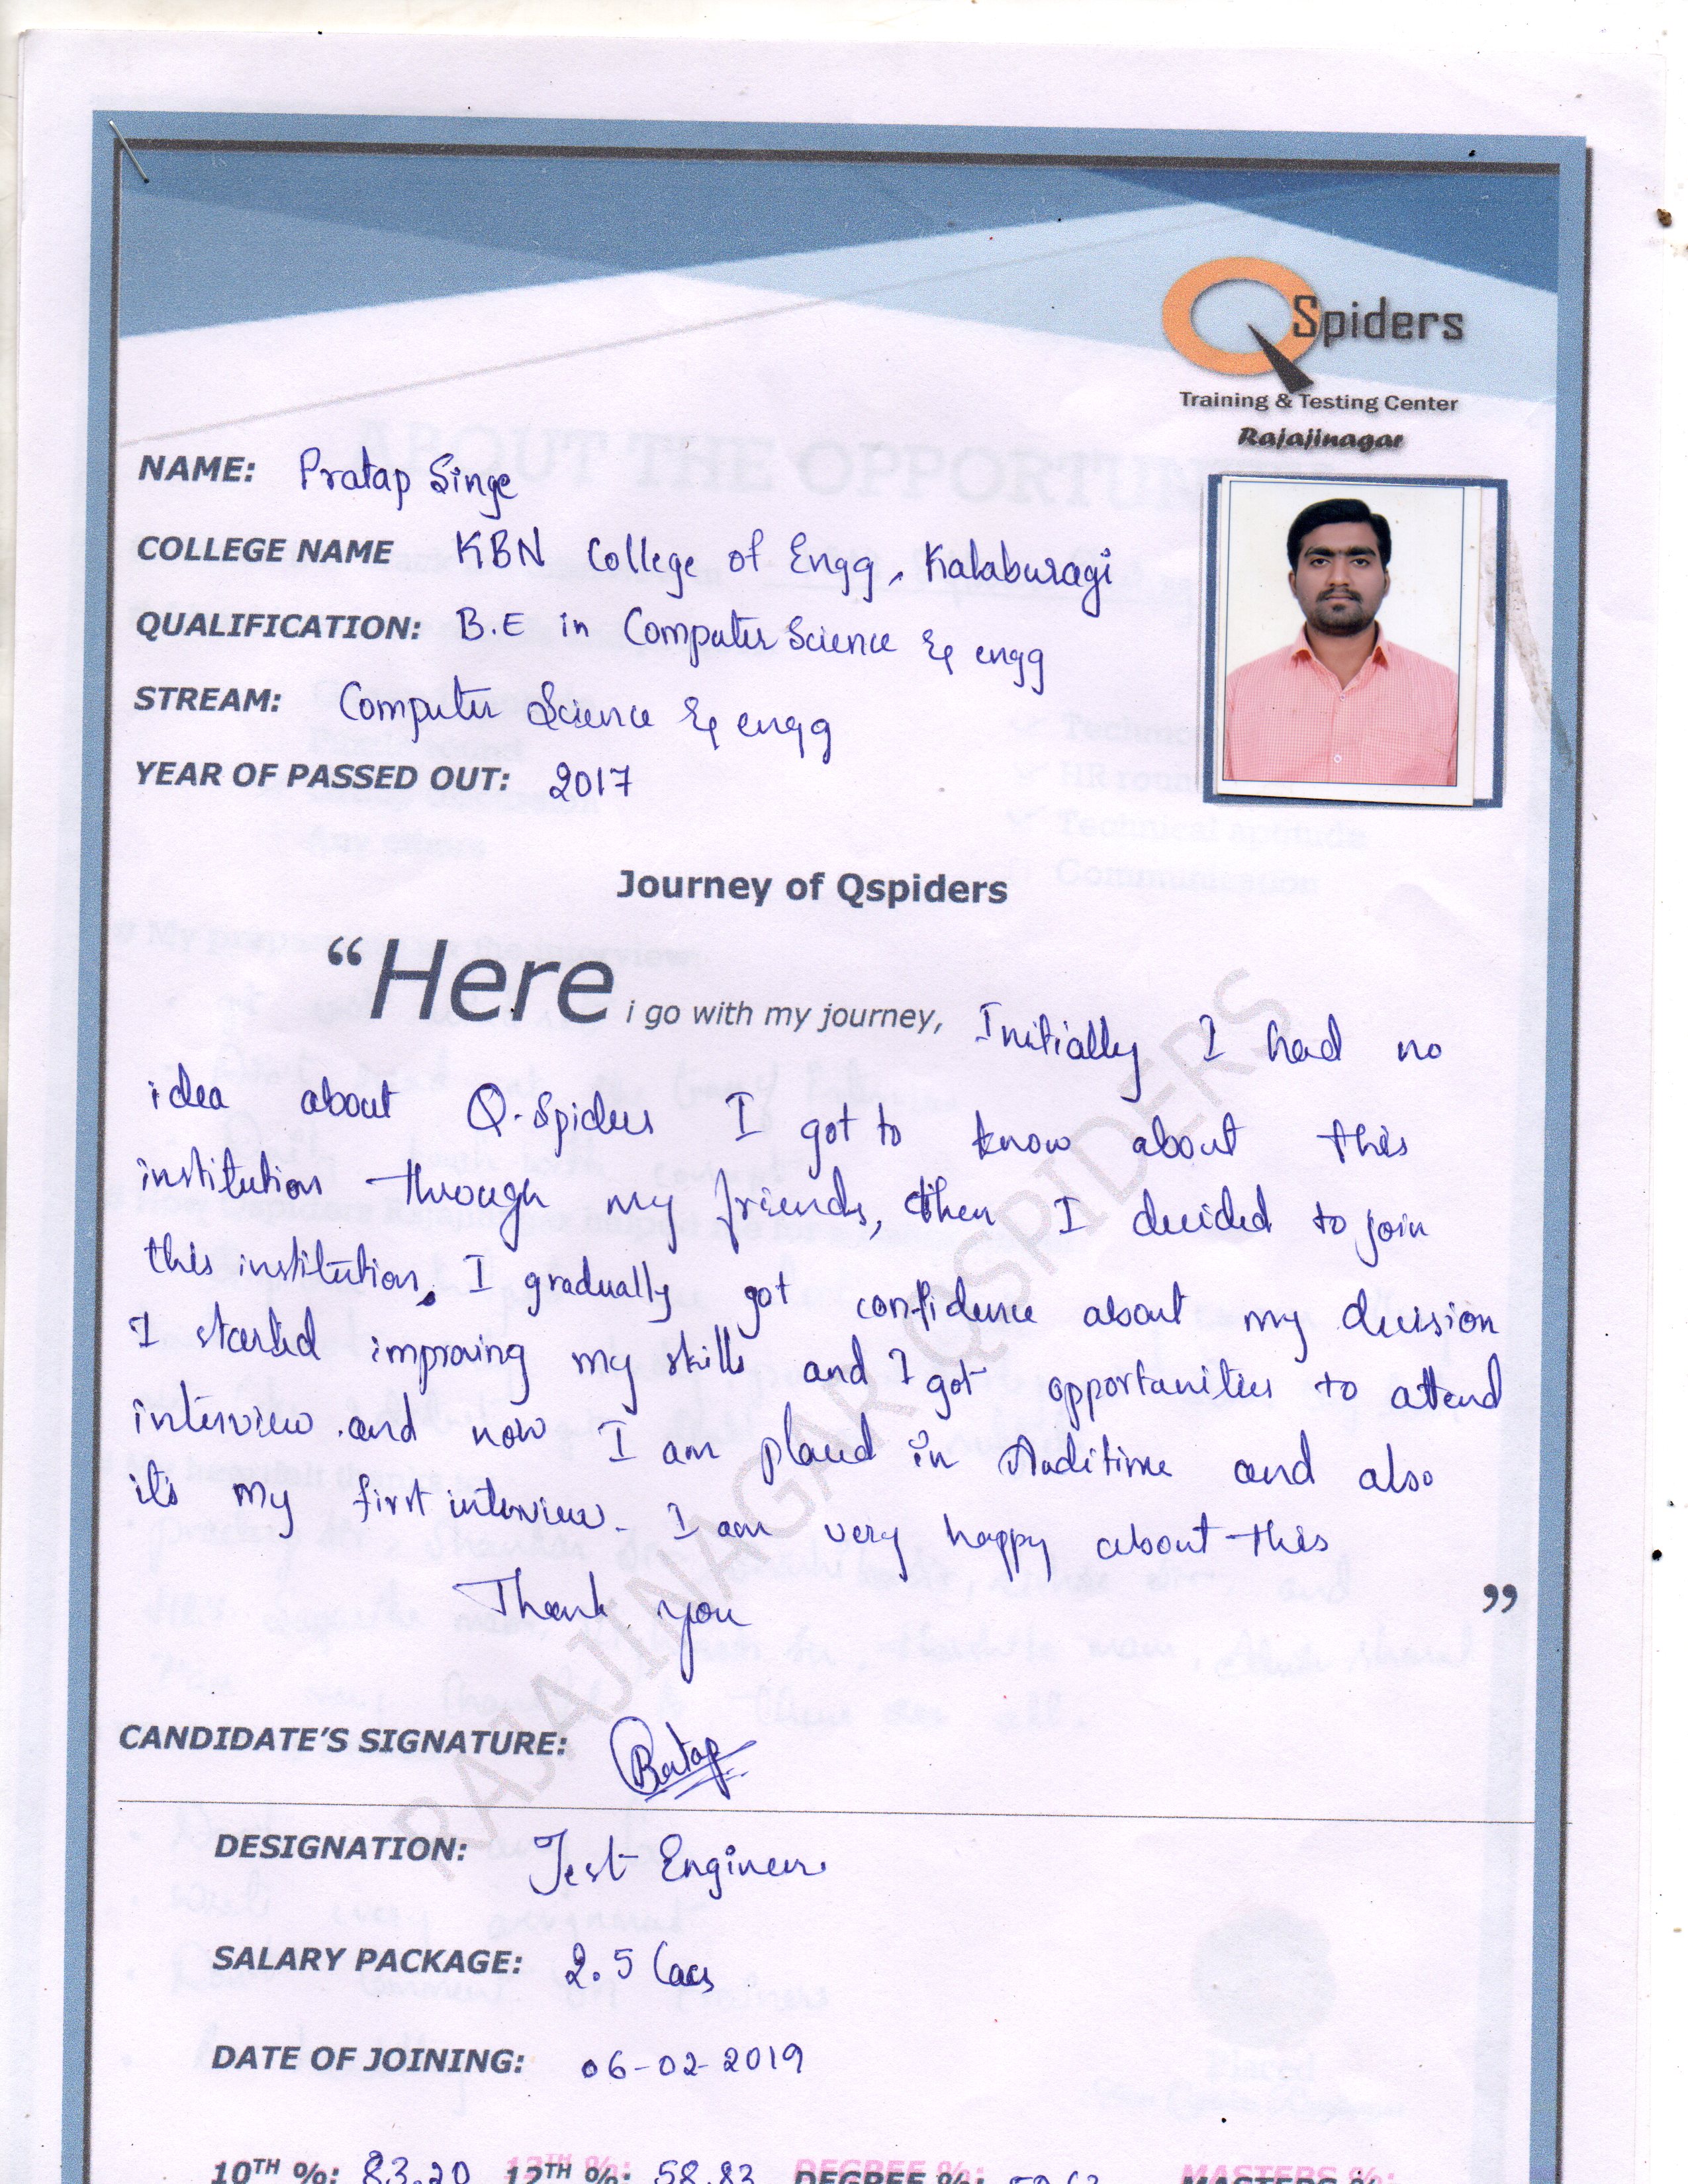 Q Spiders
Training & Testing Center
Rajajinagar
NAME: Pratap Singe
COLLEGE NAME KBN College of Engg, Kalaburagi
QUALIFICATION: B.E in Computer Science & engg
STREAM: Computer Science & engg
YEAR OF PASSED OUT: 2017
Journey of Qspiders
“Here i go with my journey, Initially I had no
idea about Q-Spiders I got to know about this
institution through my friends, then I decided to join
this institution, I gradually got confidence about my decision
I started improving my skills and I got opportunities to attend
interview and now I am placed in Auditime and also
it's my first interview. I am very happy about this
Thank you ”
RAJAJINAGAR QSPIDERS
CANDIDATE’S SIGNATURE: Pratap
DESIGNATION: Test Engineer
SALARY PACKAGE: 2.5 Lacs
DATE OF JOINING: 06-02-2019
10TH %: 83.20 12TH %: 58.83 DEGREE %: MASTERS %: